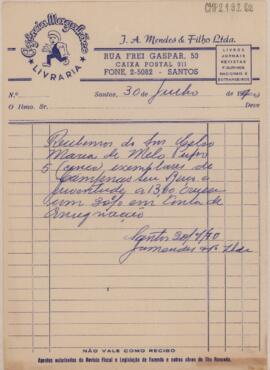 CMP2.1.9.2.82
Agência Magalhães
LIVRARIA
J. A. Mendes & Filho Ltda.
RUA FREI GASPAR, 53
CAIXA POSTAL 911
FONE, 2-5082 - SANTOS
LIVROS
JORNAIS
REVISTAS
FIGURINOS
NACIONAIS E
ESTRANGEIROS
N.º
Santos, 30 de Junho de 19
O Ilmo. Sr.
Deve
Recebemos do Snr Celso
Maria de Mello Pupo
5 (cinco) exemplares de
Campinas seu Berço e
Juventude a 13,00
com 30% em Conta de
Consignação
Santos 30/ /70
Jamendes & Fº Ltda
NÃO VALE COMO RECIBO
Agentes autorizados da Revista Fiscal e Legislação de Fazenda e outras obras de Tito Rezende.